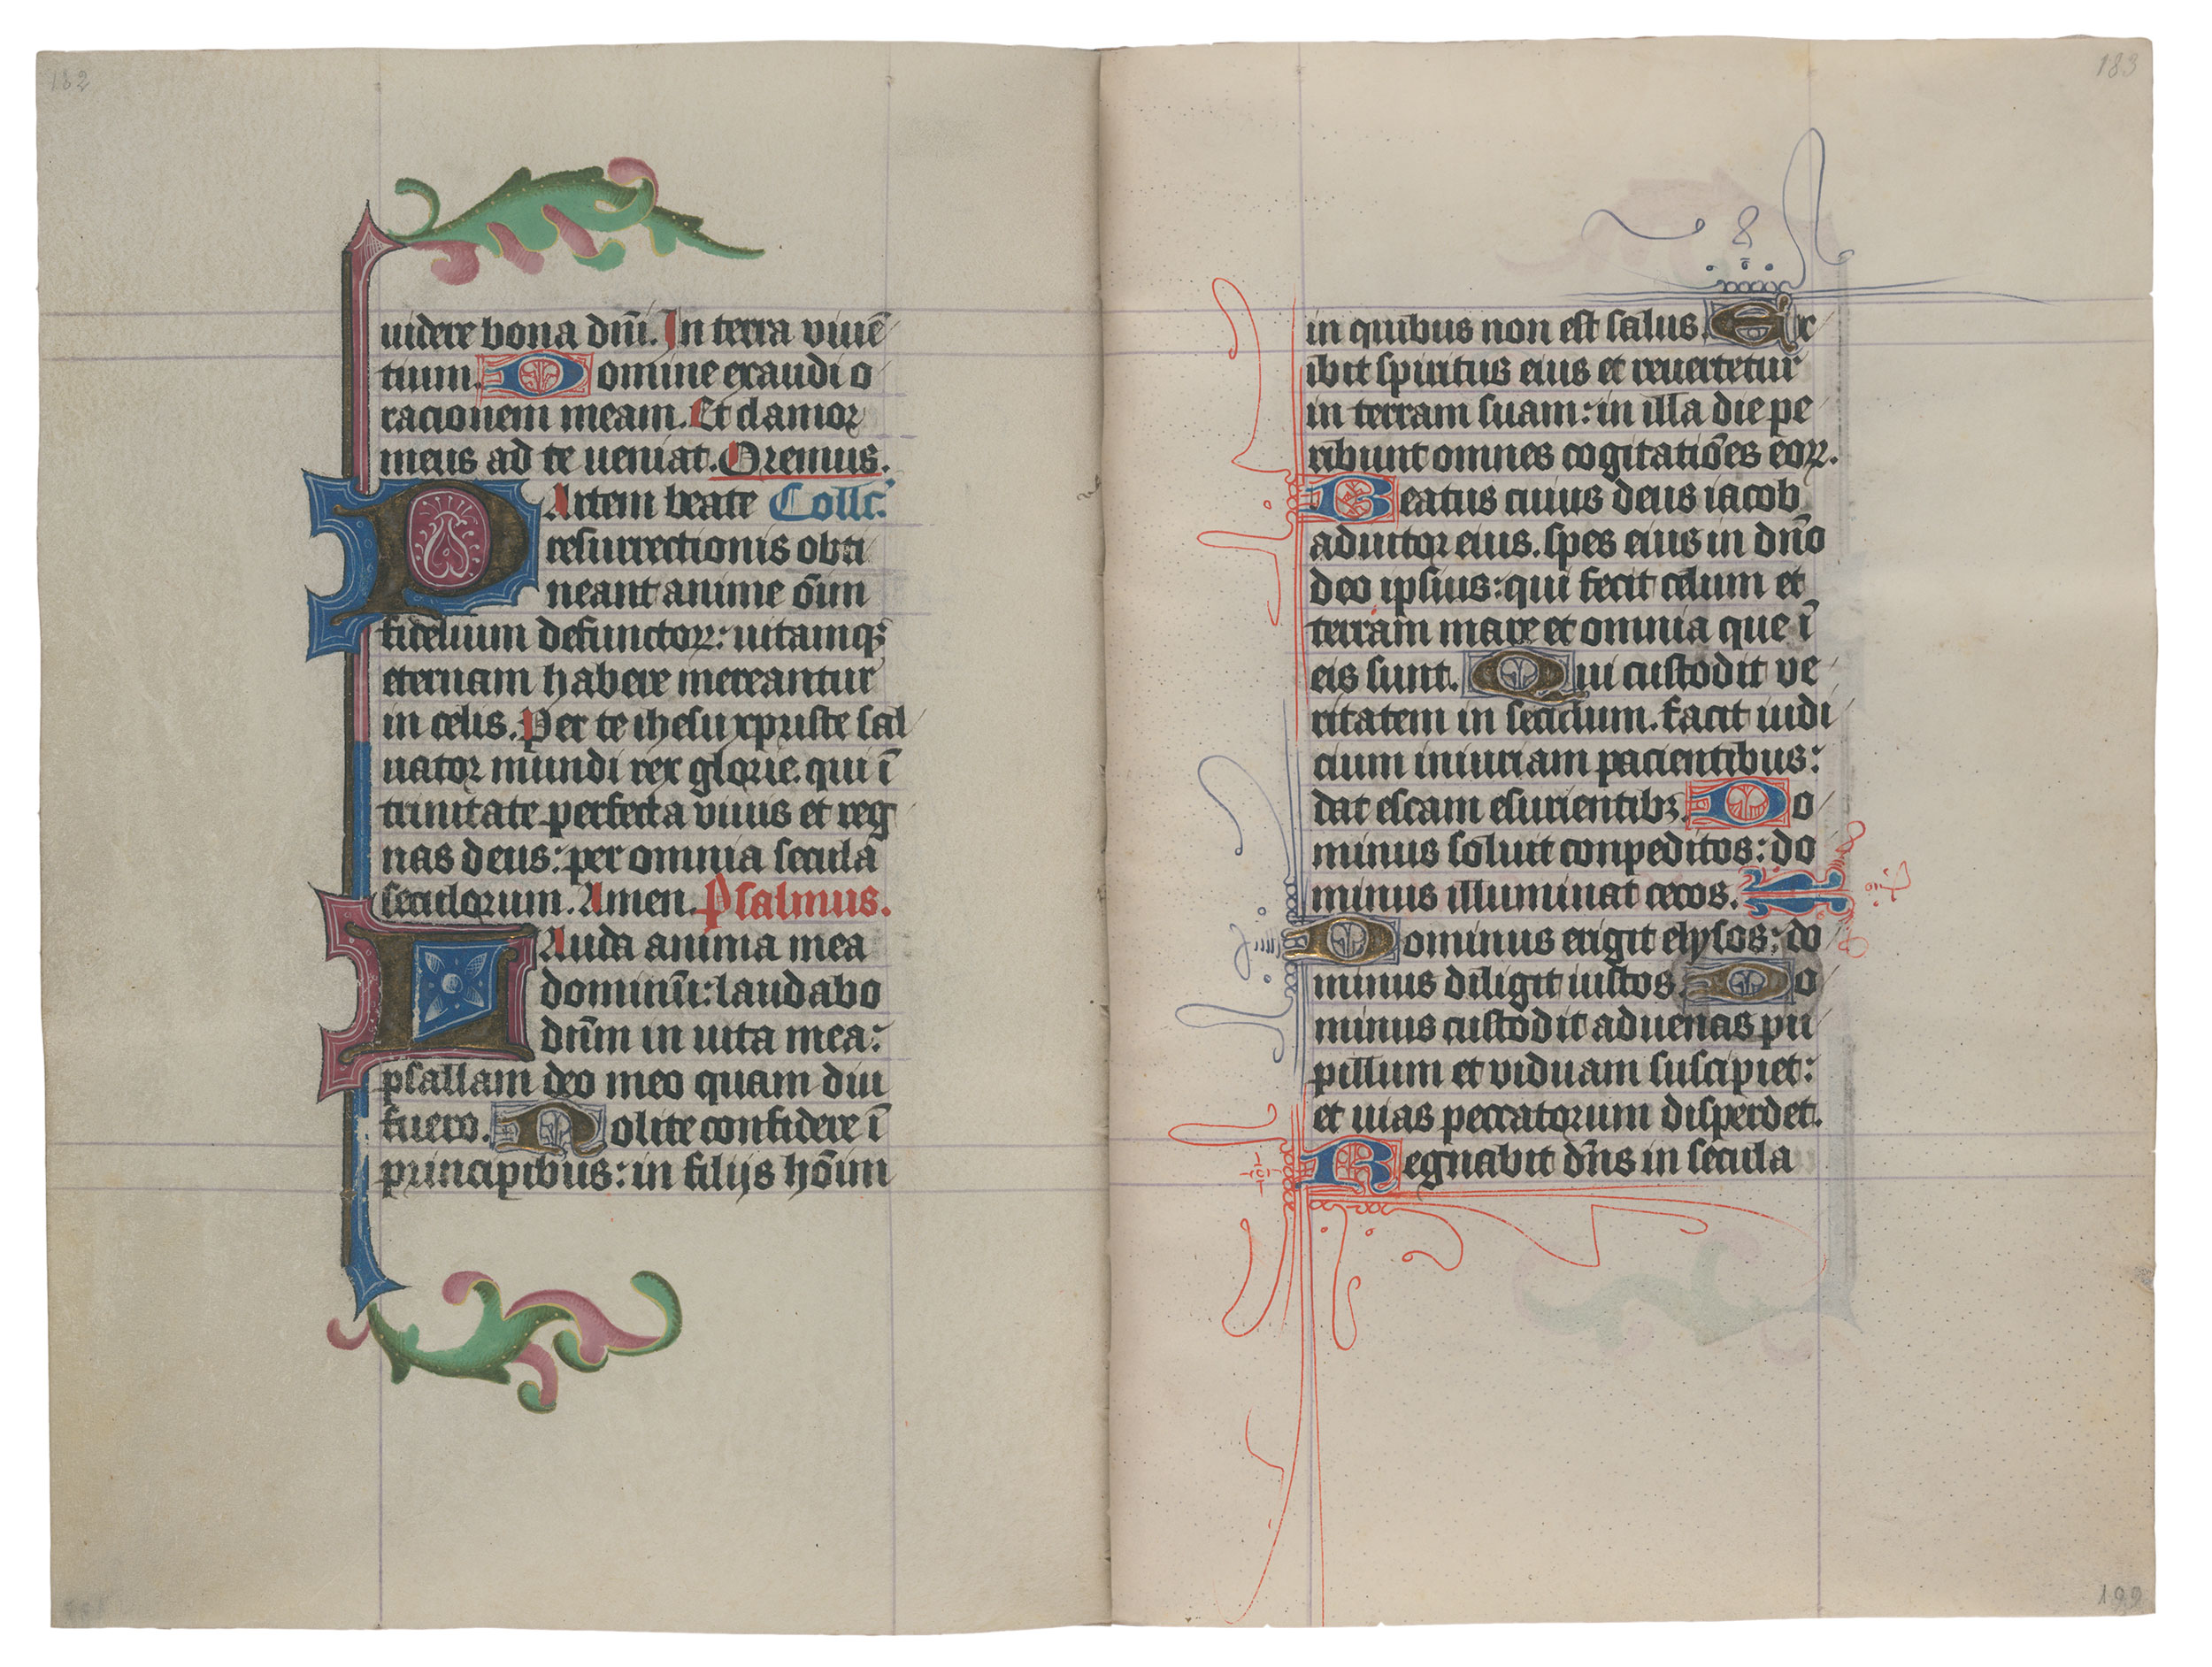 182
uidere bona dn̄i. In terra viuē
tium. Domine exaudi o
racionem meam. Et clamor
meus ad te ueniat. Oremus.
PArtem beate Collc̄.
resurrectionis obti
neant anime om̄im
fidelium defunctoꝝ: uitamqꝫ
eternam habere mereantur
in celis. Per te ihesu xpriste sal
uator mundi rex glorie. qui ī
trinitate perfecta viuis et reg
nas deus: per omnia secula
seculorum. Amen. Psalmus.
LAuda anima mea
dominū: laudabo
dn̄m in uita mea:
psallam deo meo quam diu
fuero. Nolite confidere ī
principibus: in filijs hōim
183
in quibus non est salus. Ex
ibit spiritus eius et reuertetur
in terram suam: in illa die pe
ribunt omnes cogitatiōes eoꝝ.
Beatus cuius deus iacob
adiutor eius. spes eius in dn̄o
deo ipsius: qui fecit celum et
terram mare et omnia que ī
eis sunt. Qui custodit ve
ritatem in seculum. facit iudi
cium iniuriam pacientibus:
dat escam esurientibꝫ. Do
minus soluit conpeditos: do
minus illuminat cecos.
Dominus erigit elysos: do
minus diligit iustos. Do
minus custodit aduenas pu
pillum et viduam suscipiet:
et uias peccatorum disperdet.
Regnabit dn̄s in secula